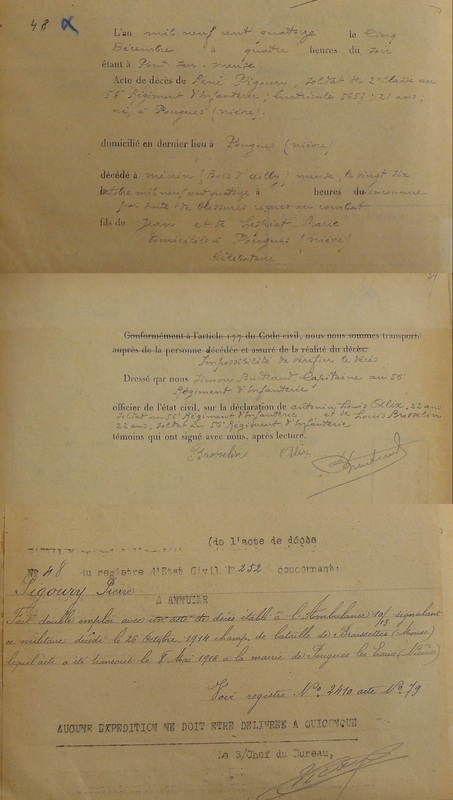 48
L'an mil neuf cent quatorze le Cinq
Décembre à quatre heures du soir
étant à Pont sur meuse.
Acte de décès de René Pigoury, soldat de 2e classe au
56e Régiment d'Infanterie; Matricule 5657; 21 ans,
né, à Pougues (nièvre).
domicilié en dernier lieu à Pougues (nièvre)
décédé à mécrin (Bois d'ailly) meuse, le vingt six
octobre mil neuf cent quatorze à heures du inconnue
par suite de blessures reçues au combat
fils de Jean et de Marie
domiciliés à Pougues (nièvre)
Célibataire
Conformément à l'article 177 du Code civil, nous nous sommes transporté
auprès de la personne décédée et assuré de la réalité du décès.
Impossibilité de vérifier le décès
Dressé par nous Simon Capitaine au 56e
Régiment d'Infanterie
officier de l'état civil, sur la déclaration de antonin Louis Ollix, 22 ans
soldat au 56e Régiment d'Infanterie et de Louis Brosselin
22 ans, soldat au 56e Régiment d'Infanterie
témoins qui ont signé avec nous, après lecture.
Brosselin Ollix
(de l'acte de décès
N° 48 du registre d'Etat Civil N° 252 concernant:
Pigoury Pierre
A ANNULER
Fait double emploi avec un acte de décès établi à l'Ambulance 10/13 signalant
ce militaire décédé le 26 Octobre 1914 champ de bataille de Brassettes (Meuse)
lequel acte a été transcrit le 8 Mai 1916 à la mairie de Pougues les Eaux (Nièvre)
Voir registre N° 2410 acte N° 79
AUCUNE EXPEDITION NE DOIT ETRE DELIVREE A QUICONQUE
Le S/Chef du Bureau,